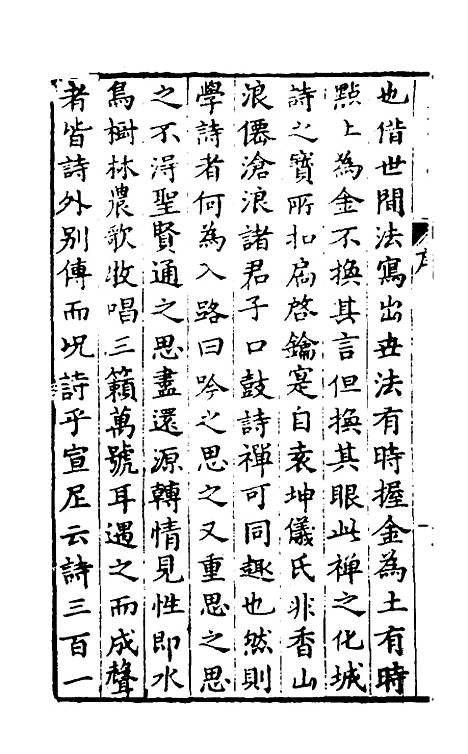 也借世間法寫出世法有時握金為土有時
點土為金不換其言但換其眼此禅之化城
詩之寳所扣扄啓鑰寔自袁坤儀氏非香山
浪僊滄浪諸君子口鼓詩禪可同趣也然則
學詩者何為入路曰吟之思之又重思之思
之不淂聖賢通之思盡還源轉情見性即水
鳥樹林農歌收唱三籟萬號耳遇之而成聲
者皆詩外别傳而况詩乎宣尼云詩三百一
序